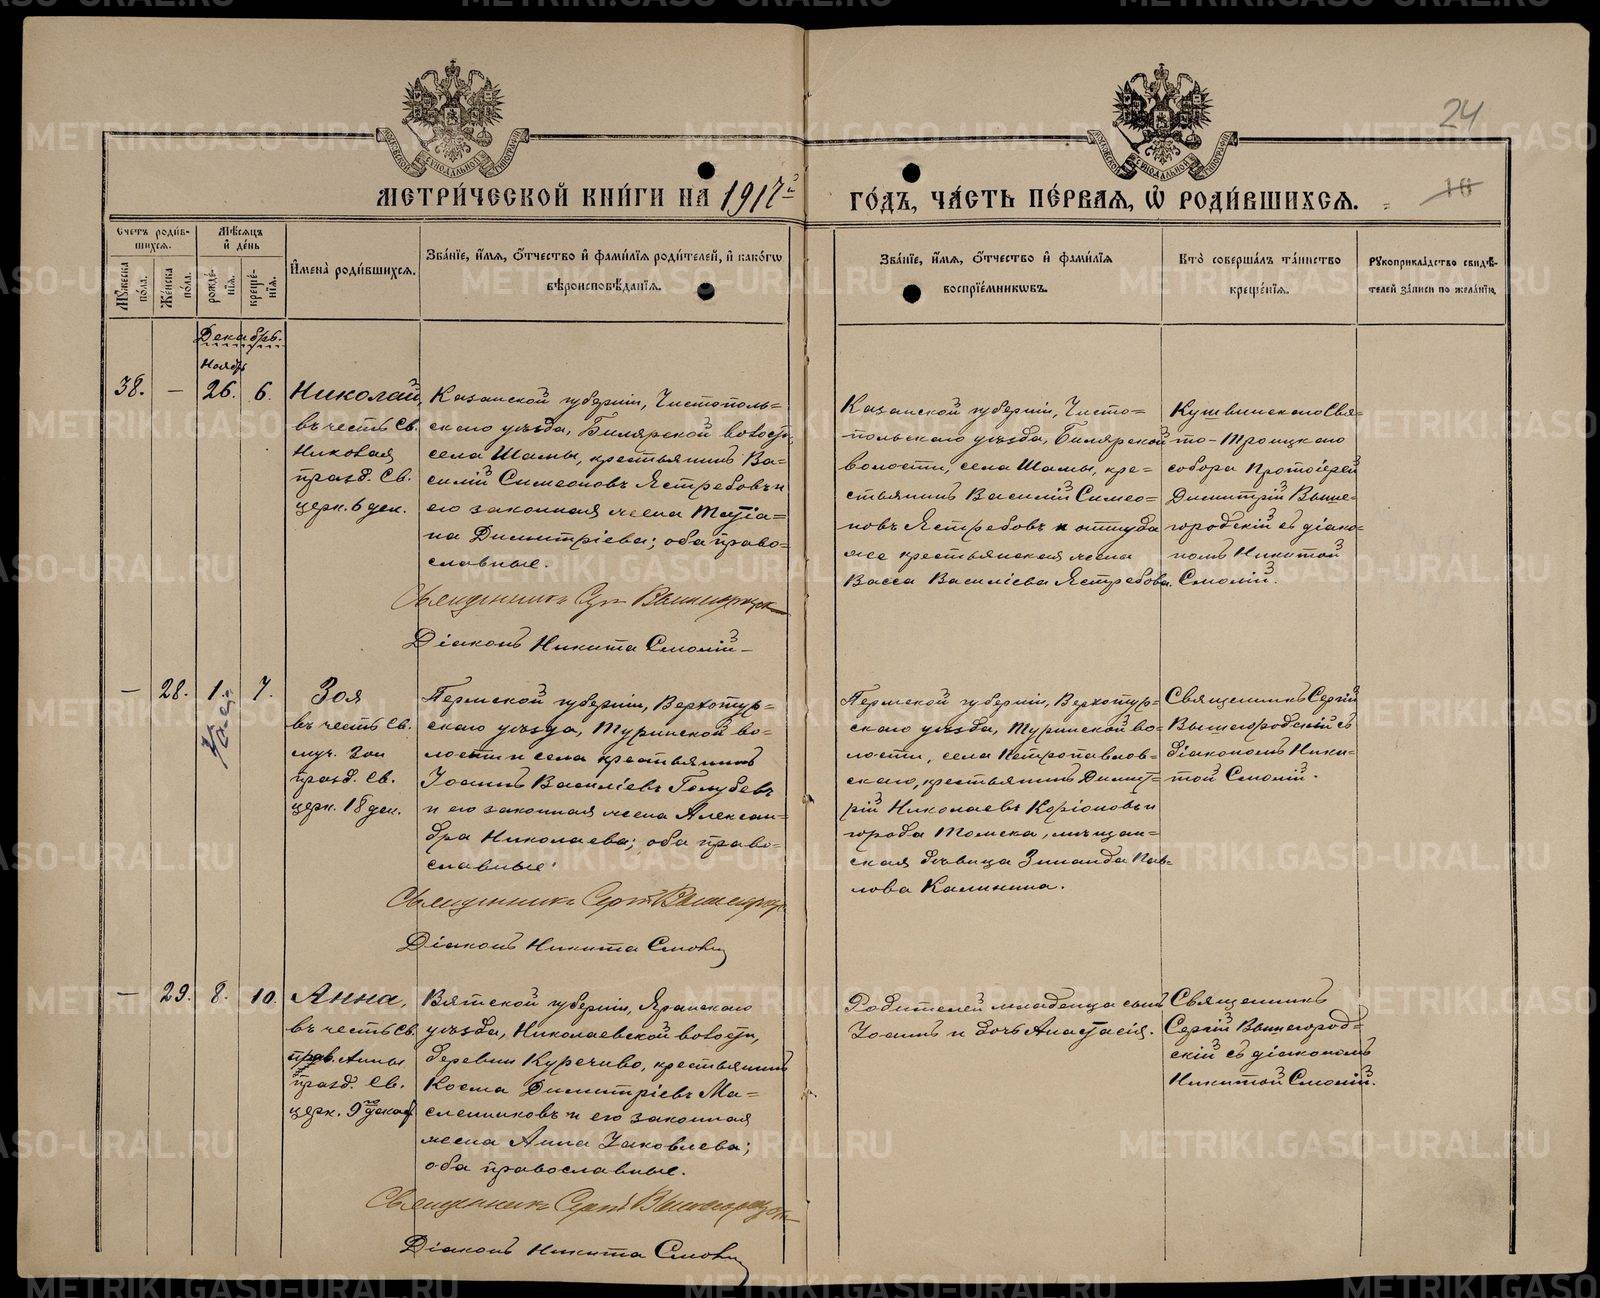 24
10
МЕТРИ́ЧЕСКОЙ КНИ́ГИ НА 1917й
ГО́ДЪ, ЧА́СТЬ ПЕ́РВАЯ, Ѿ РОДИ́ВШИХСЯ.
Счетъ роди́в-
шихся.
Мѣ́сяцъ
и҆ де́нь
Мꙋ́жеска
по́ла.
Же́нска
по́ла.
рожде́-
нїя.
креще́-
нїя.
И҆мена̀ роди́вшихся.
Зва́нїе, и҆́мя, ѻ҆́тчество и҆ фами́лїя роди́телей, и҆ како́гѡ
вѣроисповѣ́данїя.
Зва́нїе, и҆́мя, ѻ҆́тчество и҆ фами́лїя
воспрїе́мникѡвъ.
Кто̀ соверша́лъ та́инство
креще́нїя.
Рꙋкоприкла́дство свидѣ́-
телей за́писи по жела́нїю.
Декабрь.
Ноябр
38.
—
26.
6.
Николай,
въ честь Св.
Николая
празд. Св.
церк. 6 дек.
Казанской губерніи, Чистополь=
скаго уѣзда, Билярской волости,
села Шамы, крестьянинъ Ва=
силій Симеоновъ Ястребовъ и
его законная жена Татіа=
на Димитріева; оба право=
славные.
Священникъ Сергій Вышегородск
Діаконъ Никита Смолій –
Казанской губерніи, Чисто=
польскаго уѣзда, Билярской
волости, села Шамы, кре=
стьянинъ Василій Симео=
новъ Ястребовъ и оттуда
же крестьянская жена
Васса Василіева Ястребова.
Кушвинскаго Свя=
то-Троицкаго
собора Протоіерей
Димитрій Выше=
городскій съ діако=
номъ Никитой
Смолій.
—
28.
1.
7.
Зоя
въ честь Св.
муч. Зои
празд. Св.
церк. 18 дек.
Пермской губерніи, Верхотур=
скаго уѣзда, Туринской во=
лости и села крестьянинъ
Іоаннъ Василіевъ Голубевъ
и его законная жена Алексан=
дра Николаева; оба право=
славные.
Священникъ Сергій Вышегород
Діаконъ Никита Смолій
Пермской губерніи, Верхотур=
скаго уѣзда, Туринской во=
лости, села Петропавлов=
скаго, крестьянинъ Димит=
рій Николаевъ Коріоновъ и
города Томска, мѣщан=
ская дѣвица Зинаида Пав=
лова Калинина.
Священникъ Сергій
Вышегородскій съ
діакономъ Ники=
той Смолій.
—
29.
8.
10.
Анна,
въ честь Св.
прав. Анны
празд. Св.
церк. 9го декаб
Вятской губерніи, Яранскаго
уѣзда, Николаевской волости,
деревни Куречиво, крестьянинъ
Косма Димитріевъ Ма=
сленниковъ и его законная
жена Анна Іаковлева;
оба православные.
Священникъ Сергій Вышегородск
Діаконъ Никита Смолій
Родителей младенца сынъ
Іоаннъ и дочь Анастасія.
Священникъ
Сергій Вышегород=
скій съ діакономъ
Никитой Смолій.
METRIKI.GASO-URAL.RU